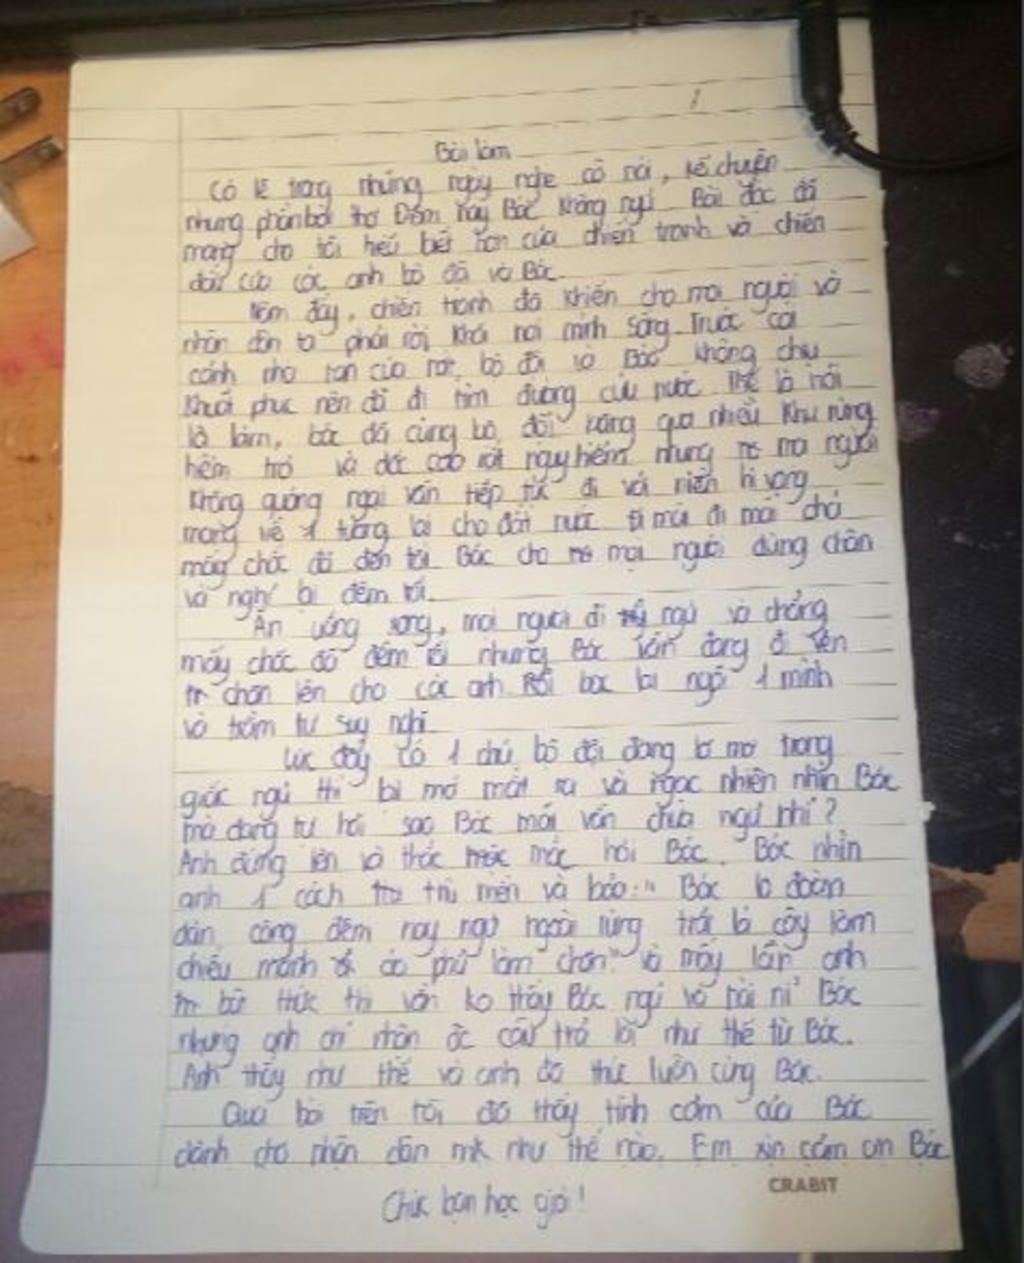 Bài làm
Có lẽ trong những ngày nghe cô nói, kể chuyện
nhưng phần bài thơ Đêm nay Bác không ngủ. Bài đọc đã
mang cho tôi hiểu biết hơn của chiến tranh và chiến
đấu của các anh bộ đã và Bác.
Năm đấy, chiến tranh đã khiến cho mọi người và
nhân dân ta phải rời khỏi nơi mình sống. Trước cái
cảnh nhà tan bộ đội và Bác không chịu
khuất phục nên đã đi tìm đường cứu nước. Thế là nói
là làm, bác đã cùng bộ đội băng qua nhiều khu rừng
hiểm trở và dốc cao rất nguy hiểm nhưng mọi người
không quảng ngại vẫn tiếp tục đi với niềm hi vọng
mang về 1 tương lai cho đất nước. Đi mãi đi mãi chả
mấy chốc đã đến tối Bác cho mọi người dừng chân
và nghỉ lại đêm tối.
Ăn uống song, mọi người đi ngủ và chẳng
mấy chốc đã đêm tối nhưng Bác vẫn đang đi
chăn lên cho các anh. Rồi bác lại ngồi 1 mình
và trầm tư suy nghĩ.
Lúc đấy có 1 chú bộ đội đang lơ mơ trong
giấc ngủ thì bì mở mắt ra và ngạc nhiên nhìn Bác
mà đang tự hỏi sao Bác mãi vẫn chưa ngủ nhỉ?
Anh đứng lên và thắc mắc hỏi Bác. Bác nhìn
anh 1 cách trìu mến và bảo: " Bác lo đoàn
dân công đêm nay ngủ ngoài rừng trải lá cây làm
chiếu manh áo phủ làm chăn" và mấy lần anh
thức thì vẫn ko thấy Bác ngủ và nài nỉ Bác
nhưng anh chỉ nhận đc câu trả lời như thế từ Bác.
Anh thấy như thế và anh đã thức luôn cùng Bác.
Qua bài trên tôi đã thấy tình cảm của Bác
dành cho nhân dân mk như thế nào. Em xin cảm ơn Bác
CRABIT
Chúc bạn học giỏi!